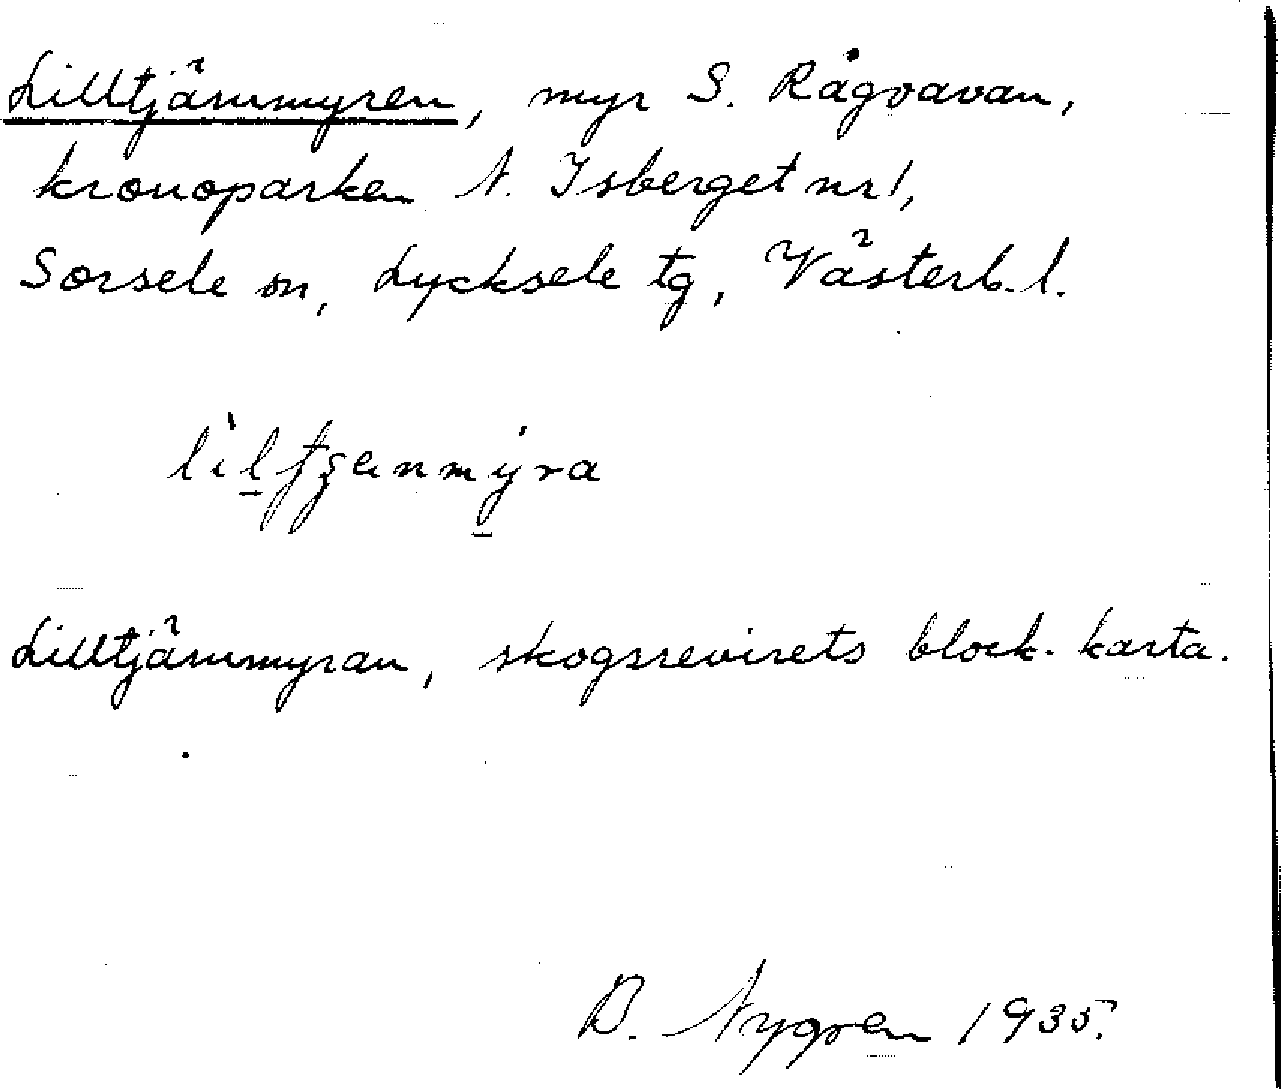 Lilltjärnmyren, myr S. Rågvavan,
kronoparken N. Isberget nr 1,
Sorsele sn, Lycksele tg, Västerb. l.
Lilltjärnmyran, skogsrevirets block. karta.
B. Nygren 1935.